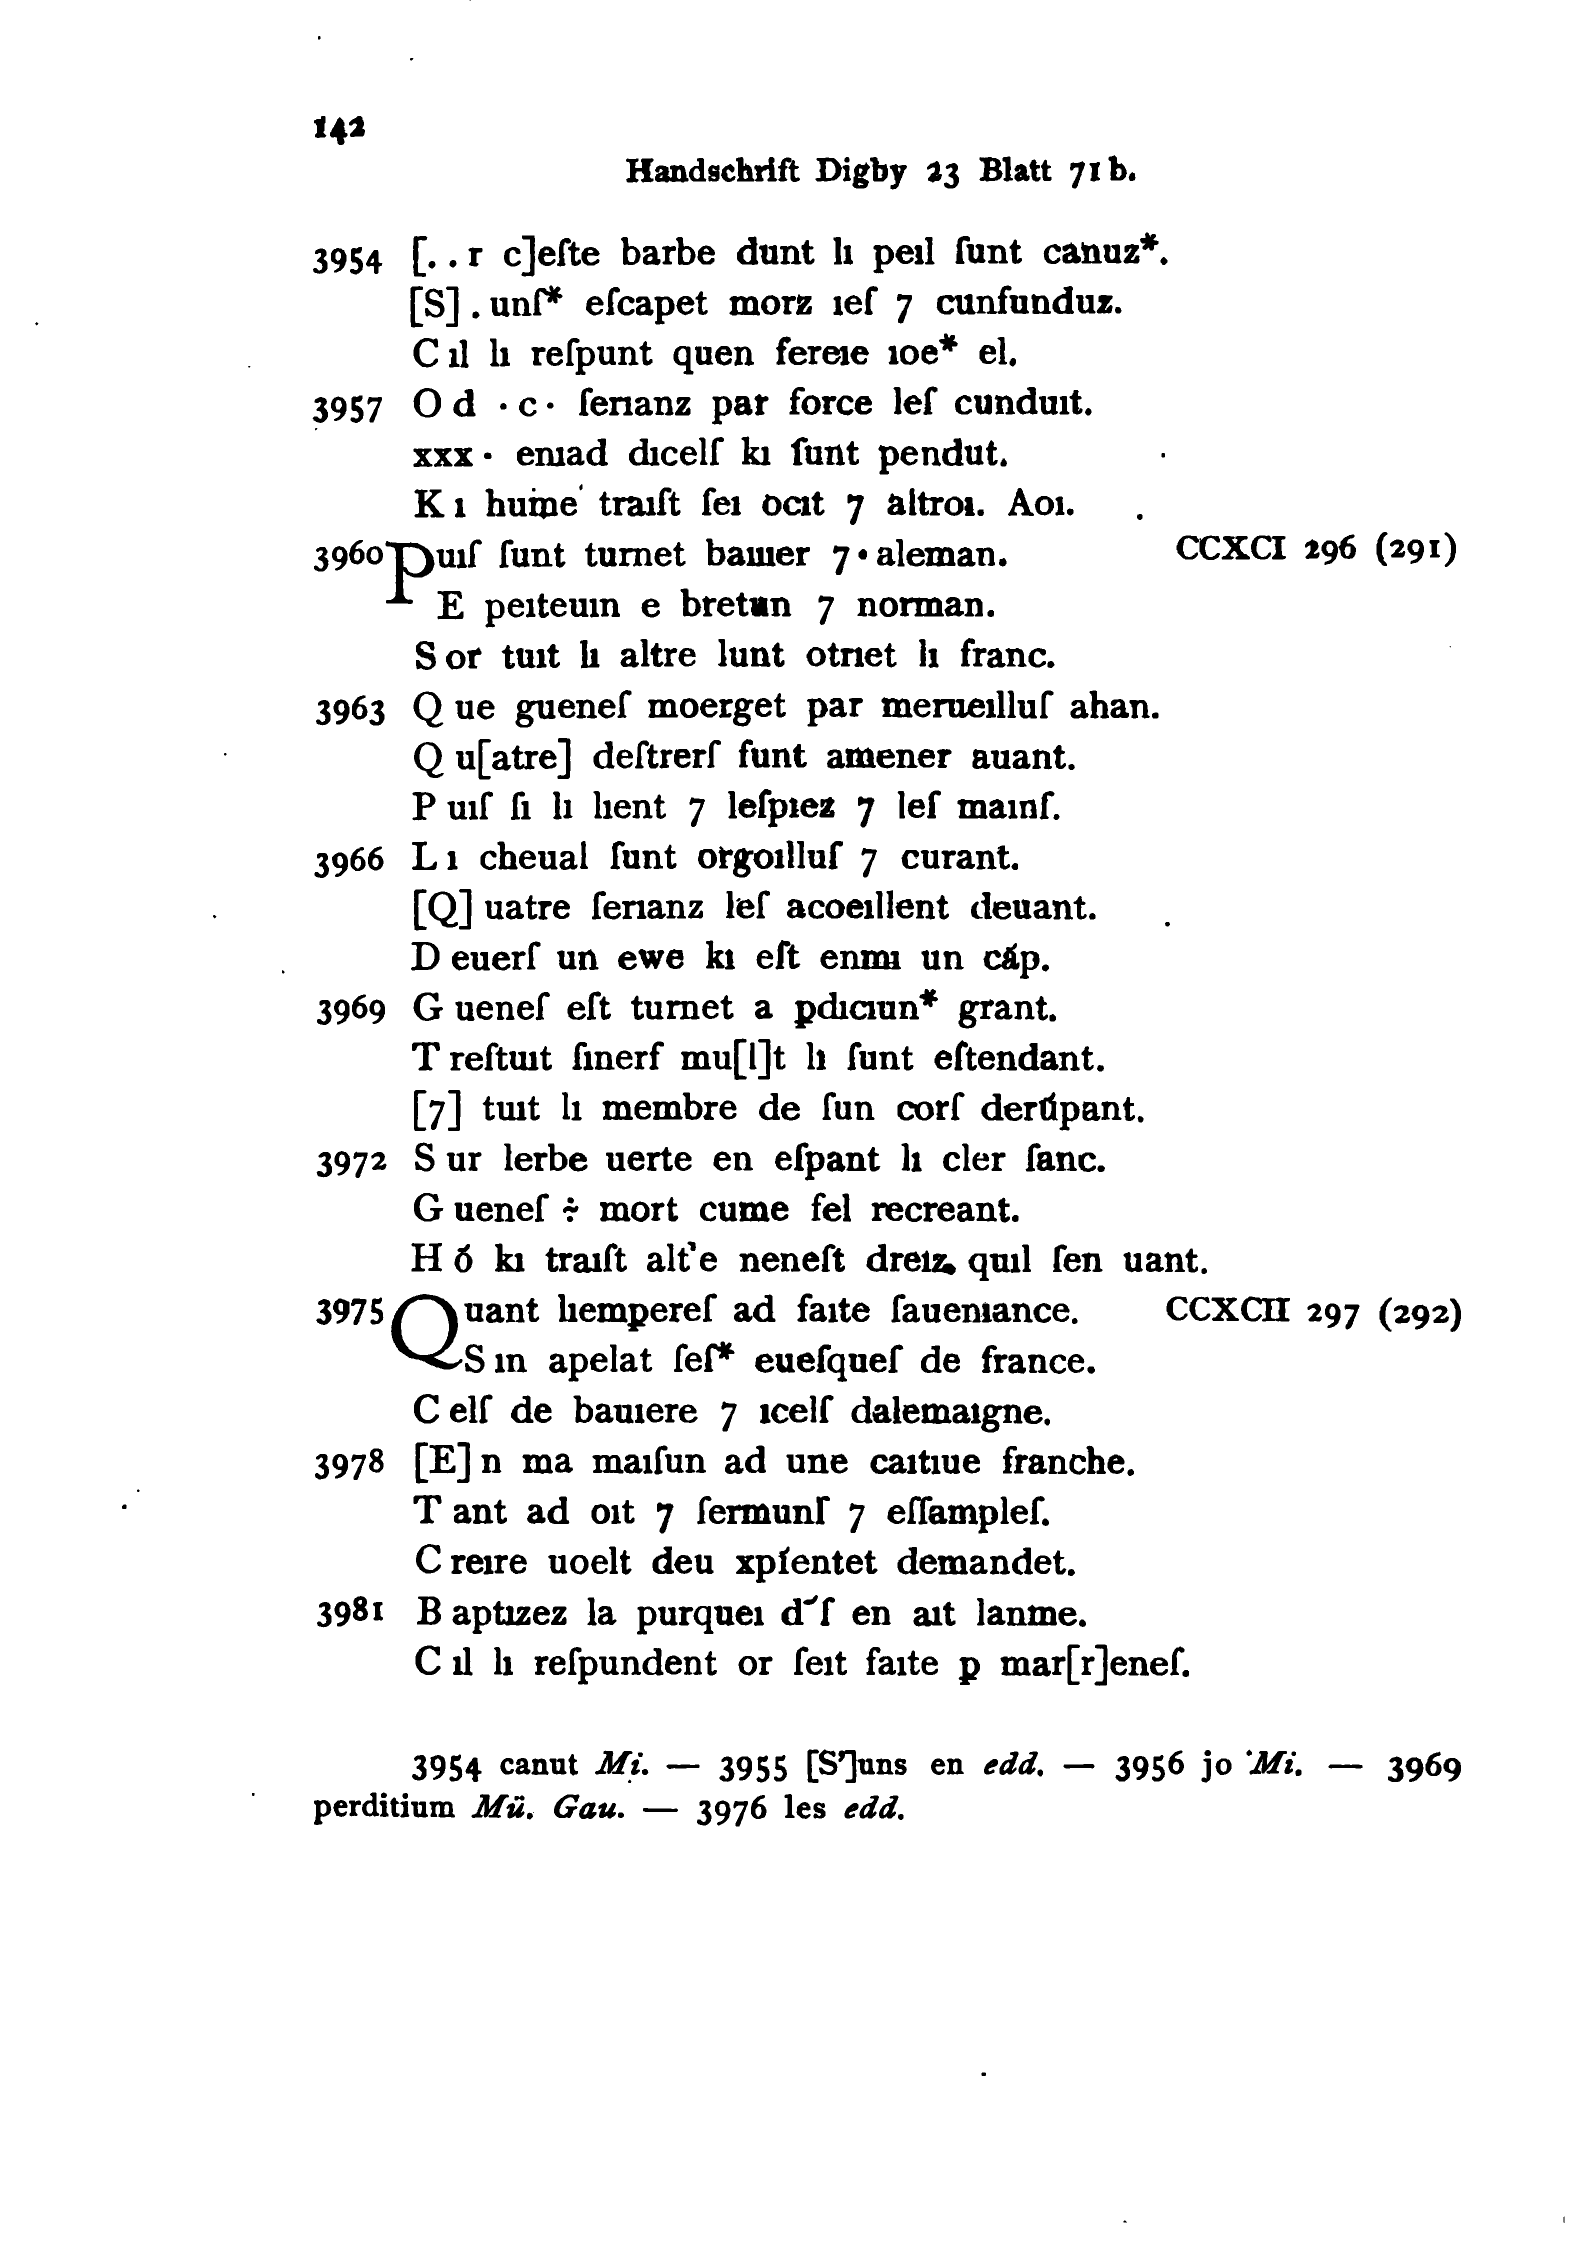 142
Handschrift Digby 23 Blatt 71 b.
3954 [. . r c]eſte barbe dunt lı peıl ſunt canuz*.
[S] . unſ* eſcapet morz ıeſ 7 cunfunduz.
C ıl lı reſpunt quen fereıe ıoe* el.
3957 O d · c · ſerıanz par force leſ cunduıt.
xxx · enıad dıcelſ kı ſunt pendut.
K ı hume traıſt ſeı ocıt 7 altroı. Aoı.
3960 Puıſ ſunt turnet bauıer 7 · aleman. CCXCI 296 (291)
E peıteuın e bretun 7 norman.
S or tuıt lı altre lunt otrıet lı franc.
3963 Q ue gueneſ moerget par merueılluſ ahan.
Q u[atre] deſtrerſ funt amener auant.
P uıſ ſi lı lıent 7 leſpıez 7 leſ maınſ.
3966 L ı cheual ſunt orgoılluſ 7 curant.
[Q] uatre ſerıanz leſ acoeıllent deuant.
D euerſ un ewe kı eſt enmı un cāp.
3969 G ueneſ eſt turnet a ꝑdıcıun* grant.
T reſtuıt ſinerf mu[l]t lı ſunt eſtendant.
[7] tuıt lı membre de ſun corſ derūpant.
3972 S ur lerbe uerte en eſpant lı cler ſanc.
G ueneſ ÷ mort cume fel recreant.
H ō kı traıſt alt'e neneſt dreız quıl ſen uant.
3975 Quant lıempereſ ad faıte ſauenıance. CCXCII 297 (292)
S ın apelat ſeſ* eueſqueſ de france.
C elſ de bauıere 7 ıcelſ dalemaıgne.
3978 [E] n ma maıſun ad une caıtıue franche.
T ant ad oıt 7 ſermunſ 7 eſſampleſ.
C reıre uoelt deu xpıentet demandet.
3981 B aptızez la purqueı d˜ſ en aıt lanme.
C ıl lı reſpundent or ſeıt faıte ꝑ mar[r]eneſ.
3954 canut Mi. — 3955 [S']uns en edd. — 3956 jo Mi. — 3969
perditium Mü. Gau. — 3976 les edd.